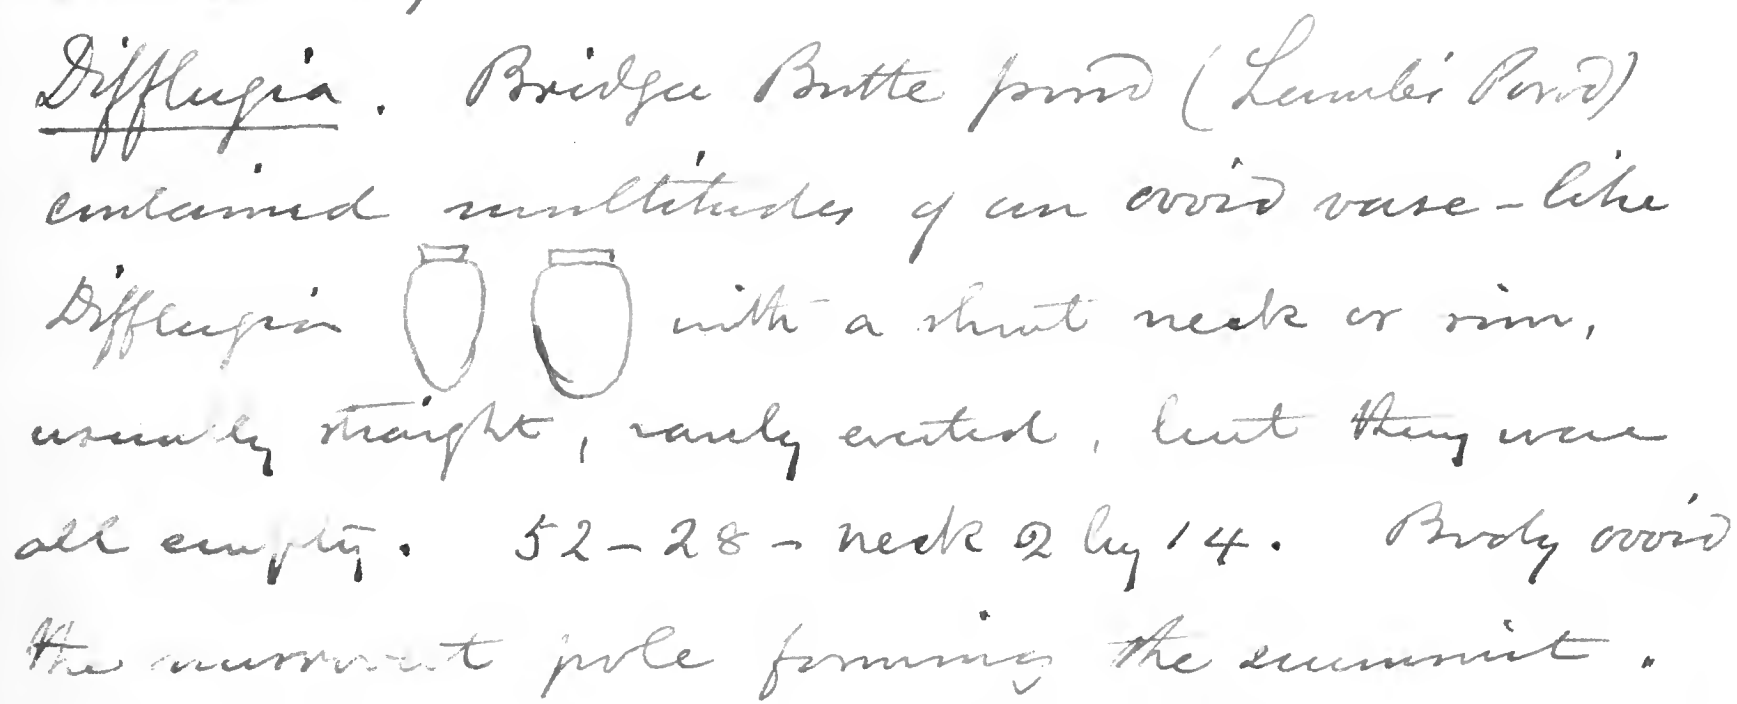 Difflugia. Bridger Butte pond (Lambi Pond)
contained multitudes of an ovoid vase-like
Difflugia with a short neck or rim,
usually straight, rarely everted, but they were
all empty. 52-28- neck 2 by 14. Body ovoid
the narrowest pole forming the summit.